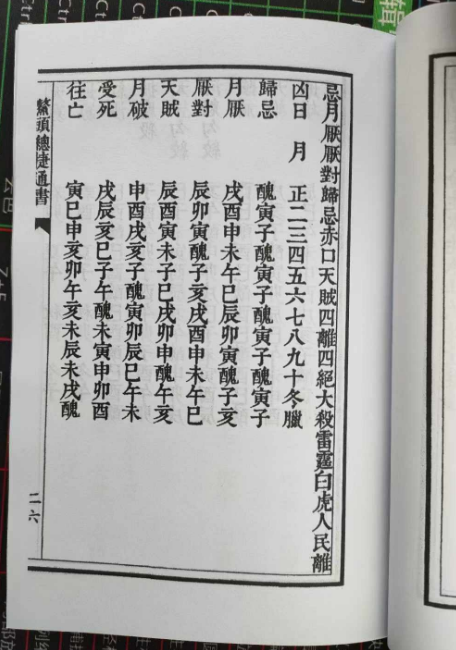 忌月厭厭對歸忌赤口天賊四離四絕大殺雷霆白虎人民離
凶日 月 正二三四五六七八九十冬臘
歸忌 醜寅子醜寅子醜寅子醜寅子
月厭 戌酉申未午巳辰卯寅醜子亥
厭對 辰卯寅醜子亥戌酉申未午巳
天賊 辰酉寅未子巳戌卯申醜午亥
月破 申酉戌亥子醜寅卯辰巳午未
受死 戌辰亥巳子午醜未寅申卯酉
往亡 寅巳申亥卯午酉子辰未戌醜
鰲頭通書
二六